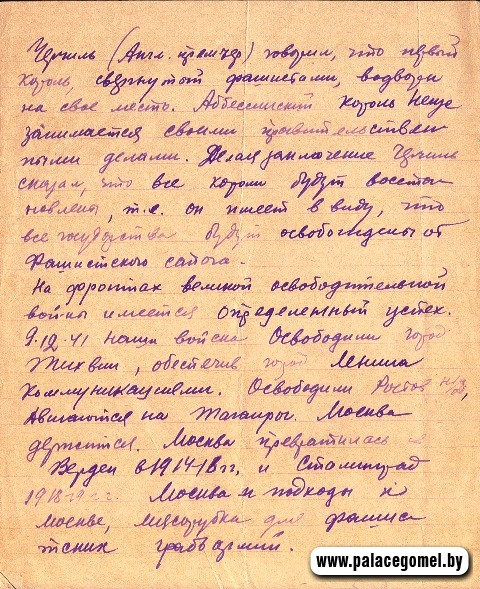 Черчиль (Англ. премьер) говорил, что первый
король, свергнутый фашистами, водворен
на свое место. Аббессинский король Негус
занимается своими правительствен
ными делами. Делая заключение Черчиль
сказал, что все короли будут восста
новлены, т.е. он имеет в виду, что
все государства будут освобождены от
Фашистского сапога.
На фронтах великой освободительной
войны имеется определенный успех.
9.12.41 наши войска освободили город
Тихвин, обеспечив город Ленина
коммуникациями. Освободили Ростов н/д,
двигаются на Таганрог. Москва
держится. Москва превратилась в
Верден в 1914-18 гг. и Сталинград
1918-19 гг. Москва и подходы к
Москве, мясорубка для фашис
тских армий.
www.palacegomel.by